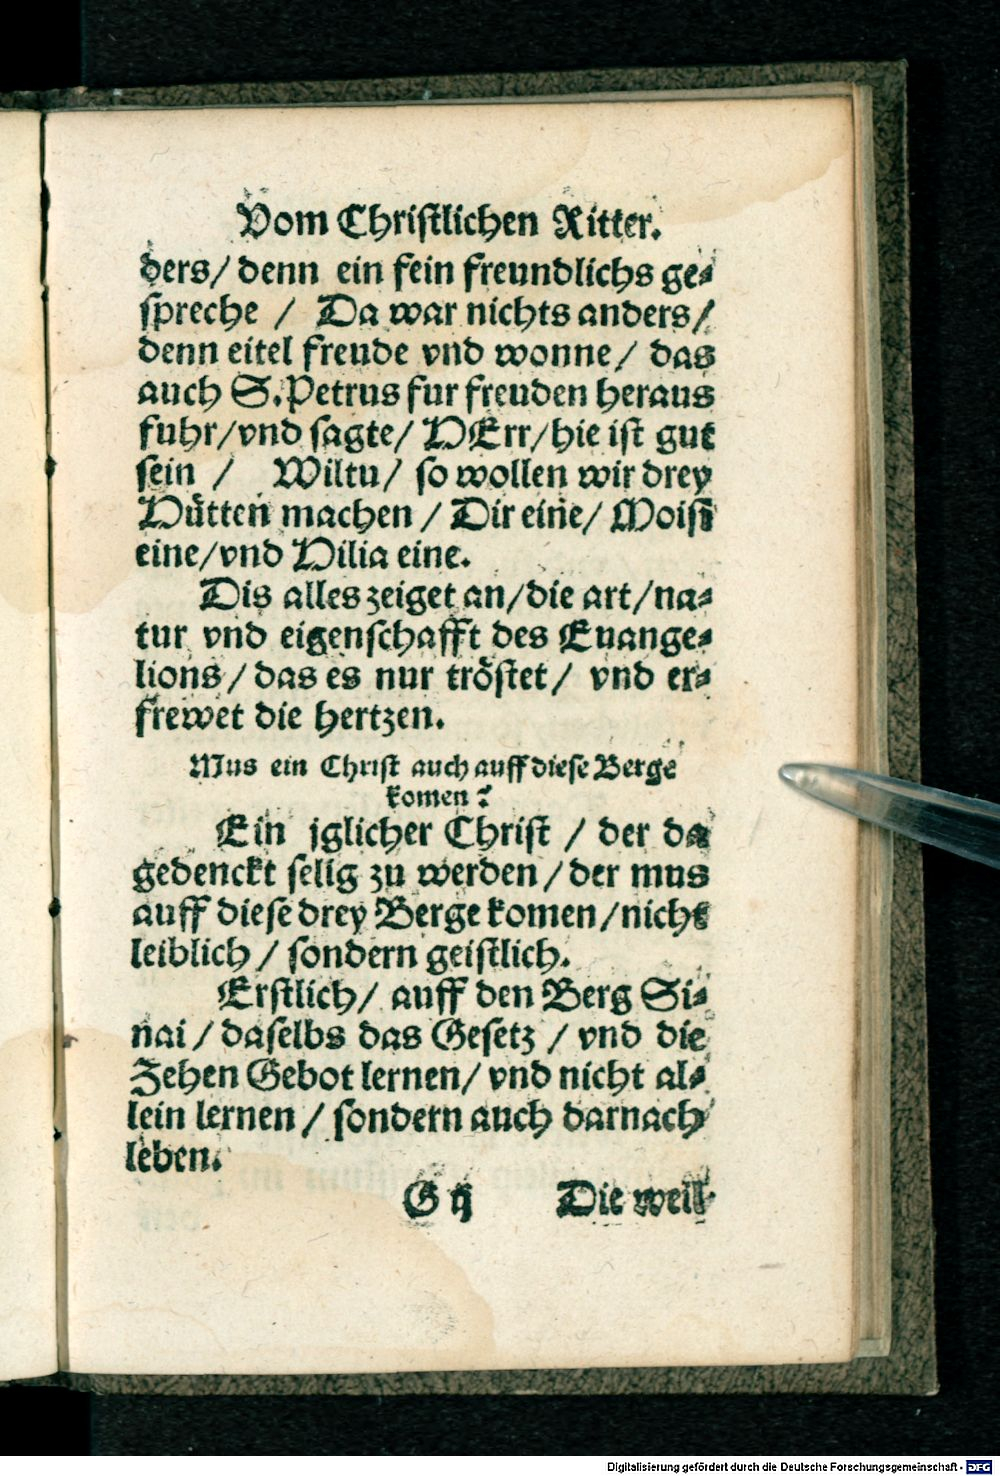 Vom Christlichen Ritter.
ders/ denn ein fein freundlichs ge-
spreche / Da war nichts anders/
denn eitel freude vnd wonne/ das
auch S. Petrus fur freuden heraus
fuhr/vnd sagte/ HErr/hie ist gut
sein / Wiltu/ so wollen wir drey
Hütten machen / Dir eine/ Moisi
eine/vnd Hilia eine.
Dis alles zeiget an/die art/na-
tur vnd eigenschafft des Euange-
lions/das es nur tröstet/ vnd er-
frewet die hertzen.
Mus ein Christ auch auff diese Berge
komen?
Ein jglicher Christ / der da
gedenckt selig zu werden/der mus
auff diese drey Berge komen/nicht
leiblich/ sondern geistlich.
Erstlich/ auff den Berg Si-
nai/daselbs das Gesetz / vnd die
Zehen Gebot lernen/ vnd nicht al-
lein lernen/ sondern auch darnach
leben.
G ij Die weil
Digitalisierung gefördert durch die Deutsche Forschungsgemeinschaft - DFG